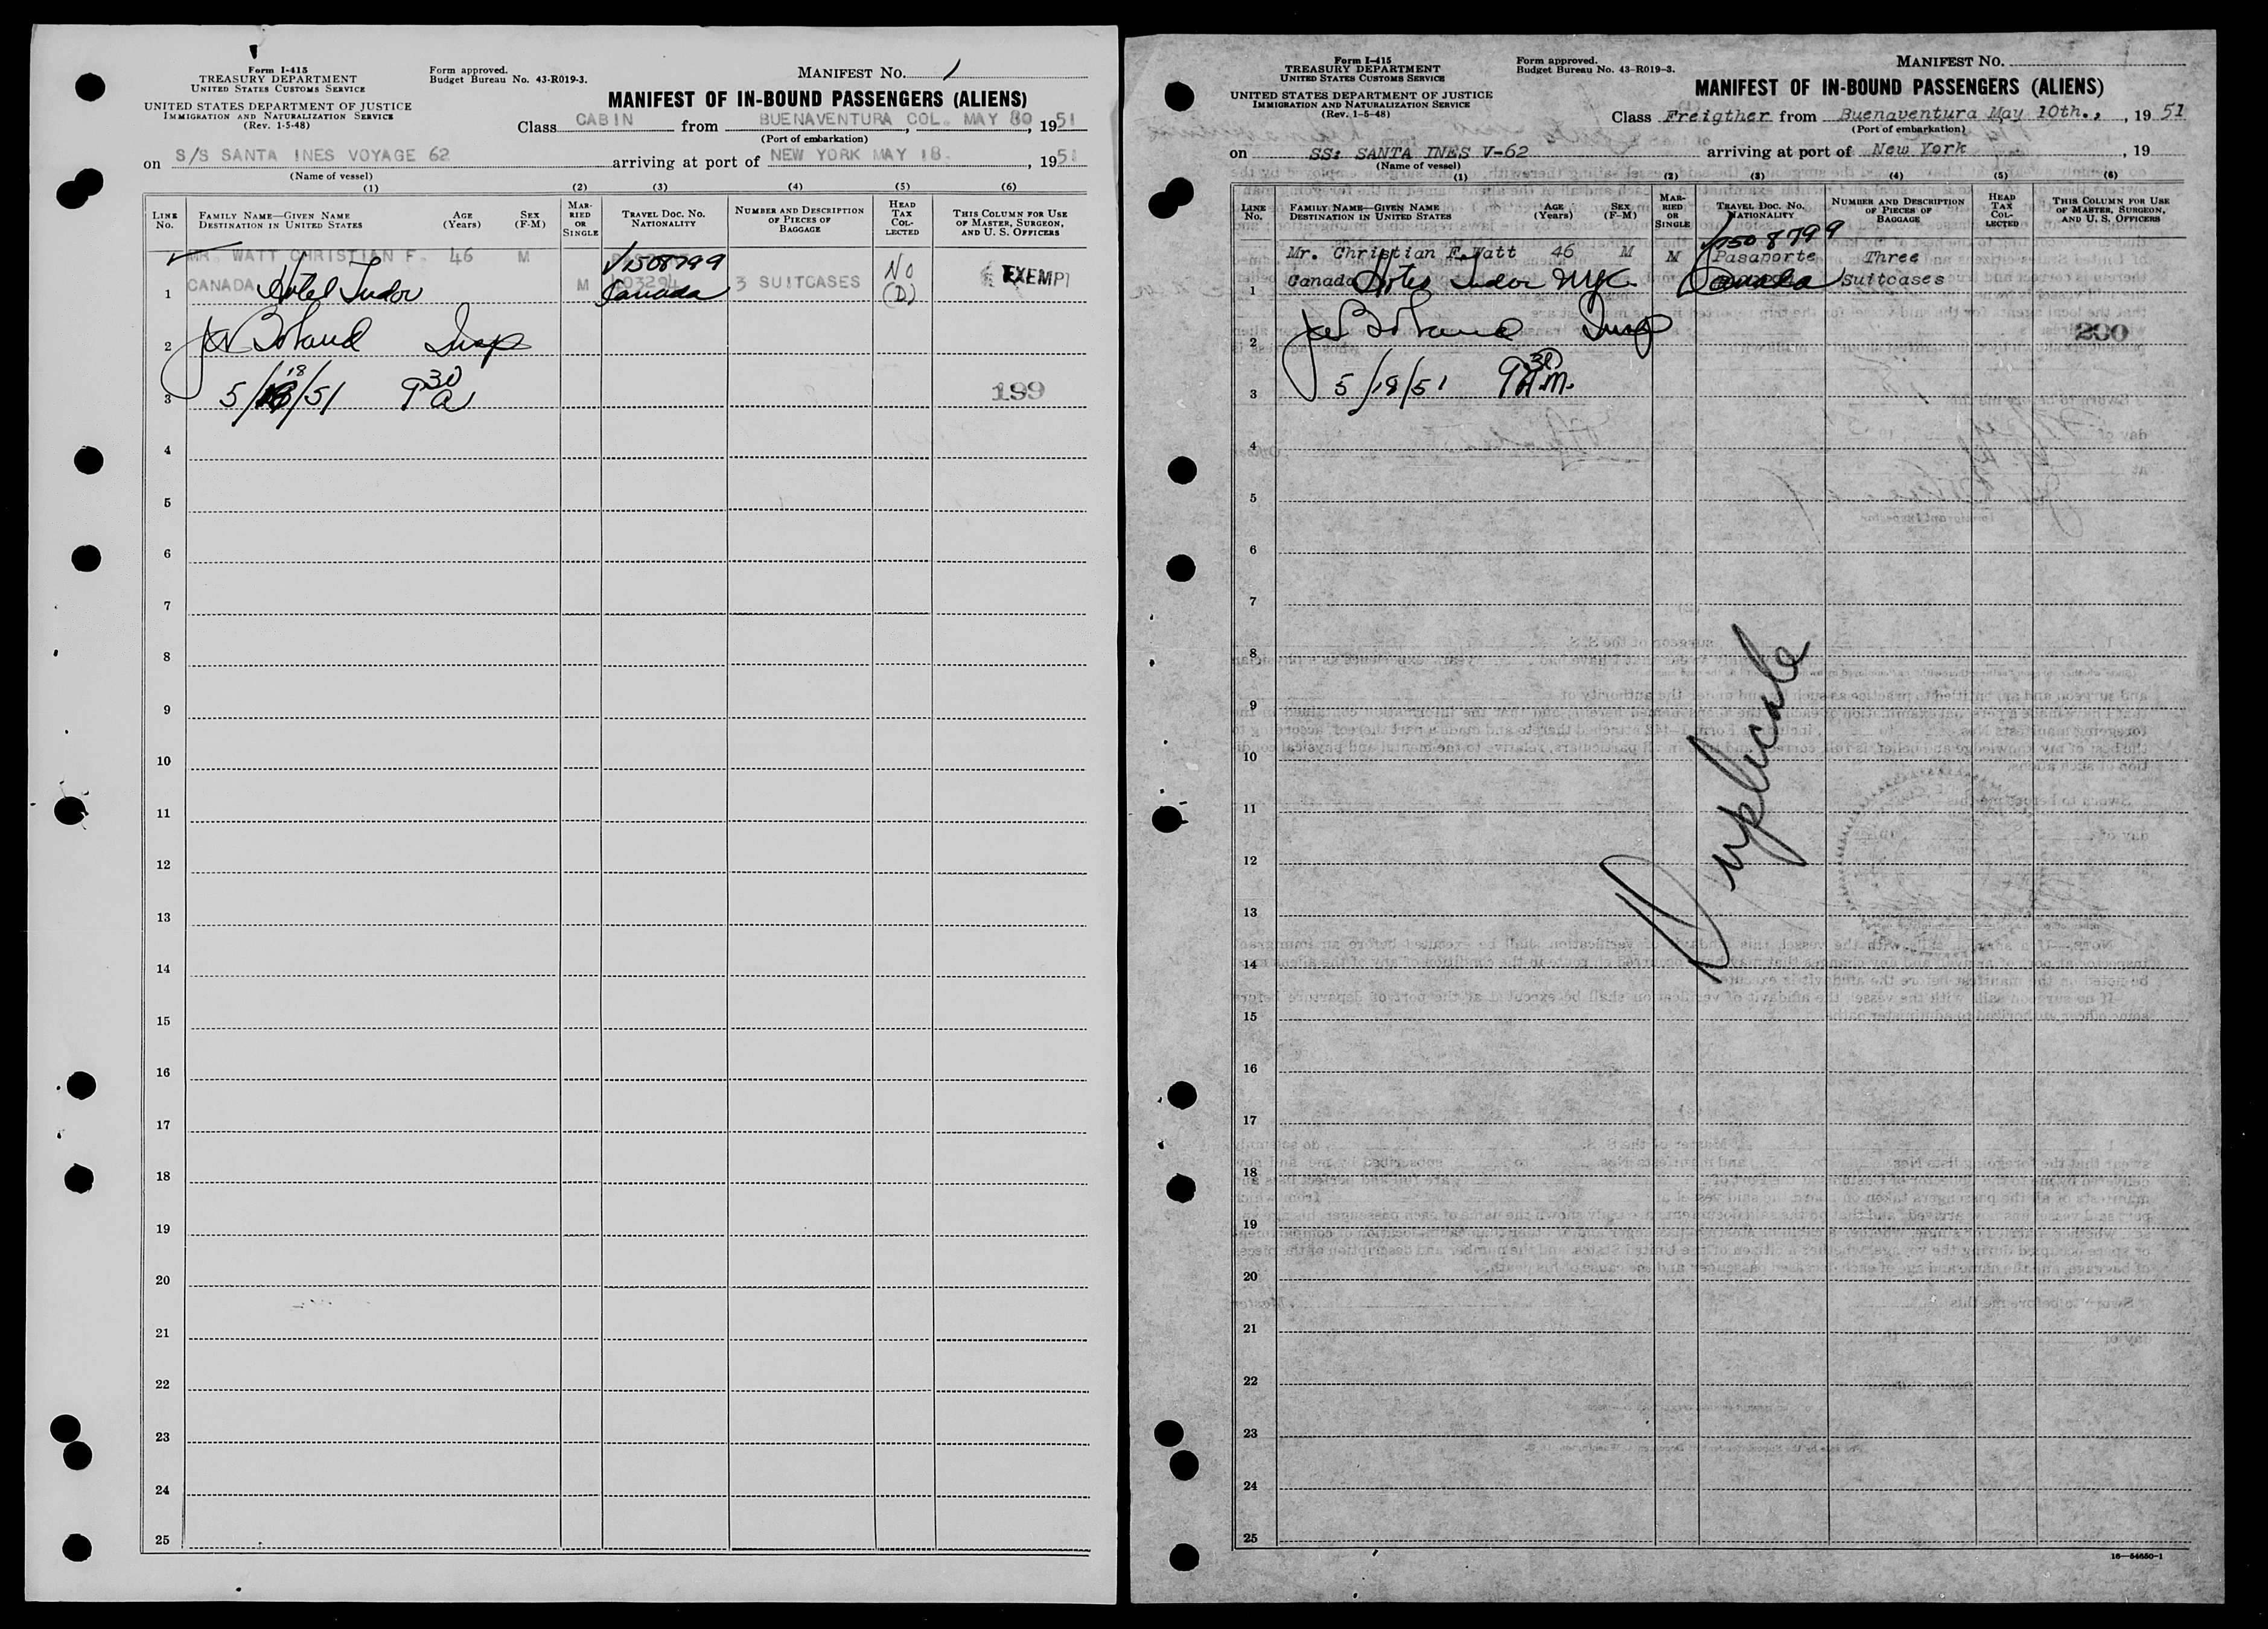 Form I-415
TREASURY DEPARTMENT
UNITED STATES CUSTOMS SERVICE
UNITED STATES DEPARTMENT OF JUSTICE
IMMIGRATION AND NATURALIZATION SERVICE
(Rev. 1-5-48)
Form approved.
Budget Bureau No. 43-R019-3.
MANIFEST NO. 1
MANIFEST OF IN-BOUND PASSENGERS (ALIENS)
Class CABIN from BUENAVENTURA COL. MAY 10, 1951
(Port of embarkation)
on S/S SANTA INES VOYAGE 62 arriving at port of NEW YORK MAY 18, 1951
(Name of vessel)
(1) (2) (3) (4) (5) (6)
LINE NO.
FAMILY NAME—GIVEN NAME
DESTINATION IN UNITED STATES
AGE (Years)
SEX (F-M)
MARRIED OR SINGLE
TRAVEL DOC. NO.
NATIONALITY
NUMBER AND DESCRIPTION OF PIECES OF BAGGAGE
HEAD TAX COLLECTED
THIS COLUMN FOR USE OF MASTER, SURGEON, AND U. S. OFFICERS
MR. WATT CHRISTIAN F. 46 M
1 CANADA Hotel Tudor M Canada 3 SUITCASES No (D) EXEMPT
2 Insp
3 5/18/51 9 30 a 199
4
5
6
7
8
9
10
11
12
13
14
15
16
17
18
19
20
21
22
23
24
25
Form I-415
TREASURY DEPARTMENT
UNITED STATES CUSTOMS SERVICE
UNITED STATES DEPARTMENT OF JUSTICE
IMMIGRATION AND NATURALIZATION SERVICE
(Rev. 1-5-48)
Form approved.
Budget Bureau No. 43-R019-3.
MANIFEST NO.
MANIFEST OF IN-BOUND PASSENGERS (ALIENS)
Class Freigther from Buenaventura May 10th., , 19 51
(Port of embarkation)
on SS: SANTA INES V-62 arriving at port of New York , 19
(Name of vessel)
(1) (2) (3) (4) (5) (6)
LINE NO.
FAMILY NAME—GIVEN NAME
DESTINATION IN UNITED STATES
AGE (Years)
SEX (F-M)
MARRIED OR SINGLE
TRAVEL DOC. NO.
NATIONALITY
NUMBER AND DESCRIPTION OF PIECES OF BAGGAGE
HEAD TAX COLLECTED
THIS COLUMN FOR USE OF MASTER, SURGEON, AND U. S. OFFICERS
Mr. Christian F. Watt 46 M M Pasaporte Three
1 Canada Hotel Tudor NYC Canada Suitcases
2 Insp 200
3 5/18/51 9 30 A.M.
4
5
6
7
8
9
10
11
12
13
14
15
16
17
18
19
20
21
22
23
24
25
Duplicate
16—54650-1